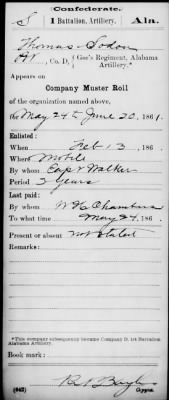 Confederate.
S | 1 Battalion, Artillery. | Ala.
Thomas Sodon
Pvt., Co. D, Gee's Regiment, Alabama Artillery.*
Appears on
Company Muster Roll
of the organization named above,
for May 24 to June 20, 1861.
Enlisted:
When Feb 13, 186 .
Where Mobile
By whom Capt Walker
Period 3 years
Last paid:
By whom W H Chambers
To what time May 24, 186 .
Present or absent not stated
Remarks:
*This company subsequently became Company D, 1st Battalion
Alabama Artillery.
Book mark:
(642)
Copyist.